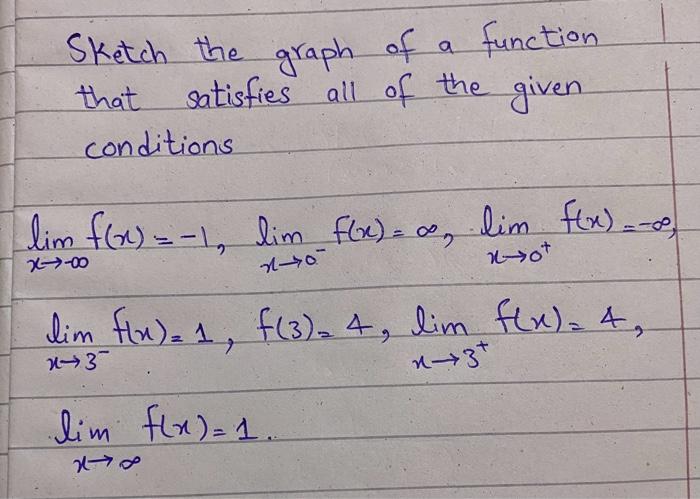 Sketch the graph of a function
that satisfies all of the given
conditions
lim f(x) = -1, lim f(x) = ∞, lim f(x) = -∞,
x→-∞ x→0⁻ x→0⁺
lim f(x) = 1, f(3) = 4, lim f(x) = 4,
x→3⁻ x→3⁺
lim f(x) = 1.
x→∞